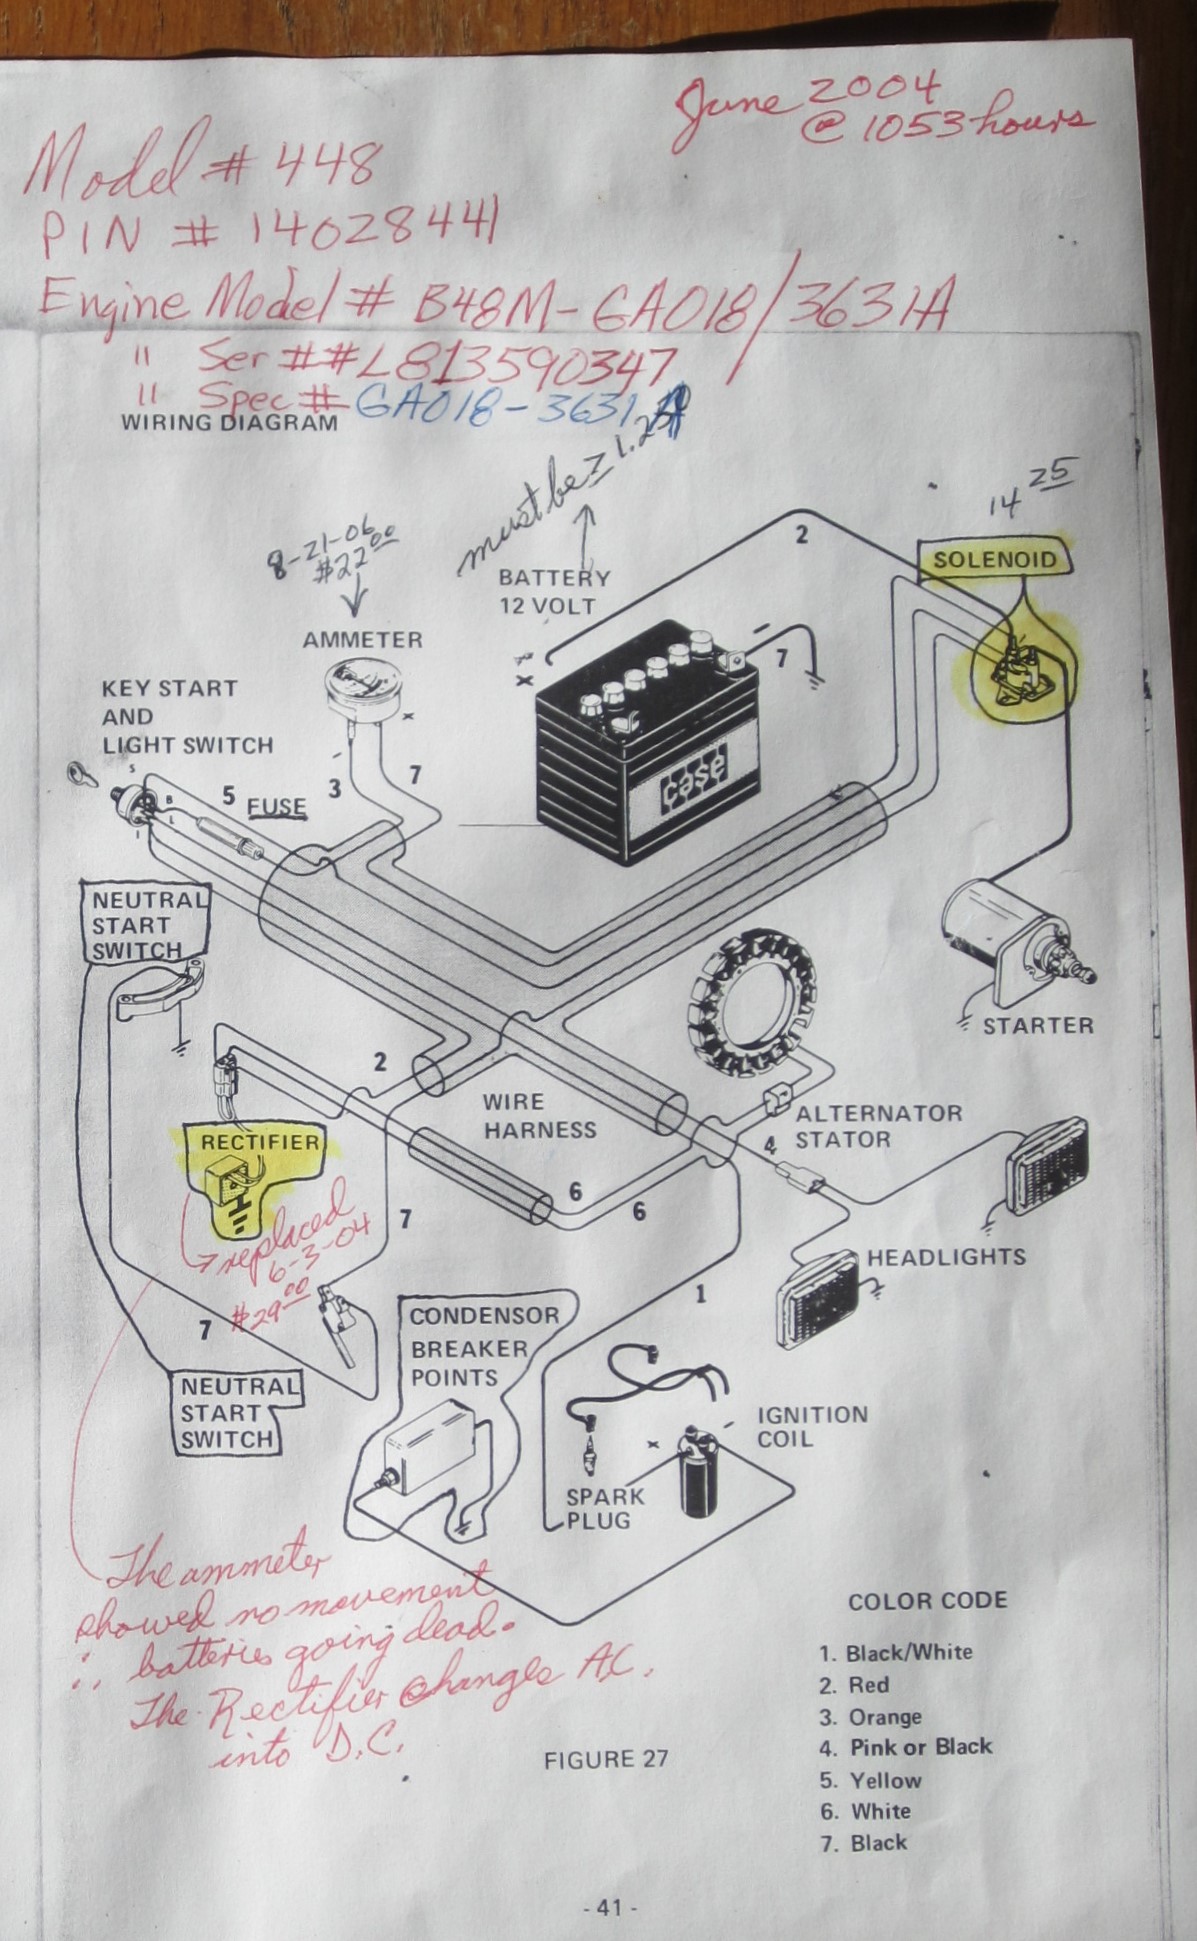 June 2004
@ 1053 hours
Model # 448
PIN # 14028441
Engine Model # B48M-GA018/3631A
" Ser ## L813590347
" Spec # GA018-3631A
WIRING DIAGRAM
must be ≥ 1.250
14 25
8-21-06
$22 00
BATTERY
12 VOLT
2
SOLENOID
AMMETER
+
x
-
7
KEY START
AND
LIGHT SWITCH
x
-
3
7
S
B
L
I
5
FUSE
case
NEUTRAL
START
SWITCH
STARTER
2
WIRE
HARNESS
ALTERNATOR
STATOR
4
RECTIFIER
6
6
7
replaced
6-3-04
$29 00
HEADLIGHTS
1
7
CONDENSOR
BREAKER
POINTS
NEUTRAL
START
SWITCH
x
-
IGNITION
COIL
SPARK
PLUG
The ammeter
showed no movement
∴ batteries going dead.
The Rectifier changes AC.
into D.C.
COLOR CODE
1. Black/White
2. Red
3. Orange
4. Pink or Black
5. Yellow
6. White
7. Black
FIGURE 27
- 41 -